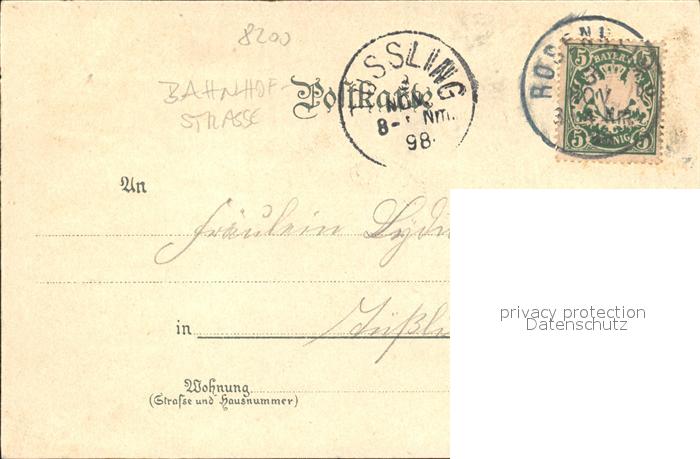 8200
BAHNHOF-
STRASSE
Postkarte
SSLING
NOV.
8- Nm.
98.
ROSENH
BAYERN
5 5
5 PFENNIG 5
An
Fräulein Lydi
in Tüßli
Wohnung
(Straße und Hausnummer)
privacy protection
Datenschutz